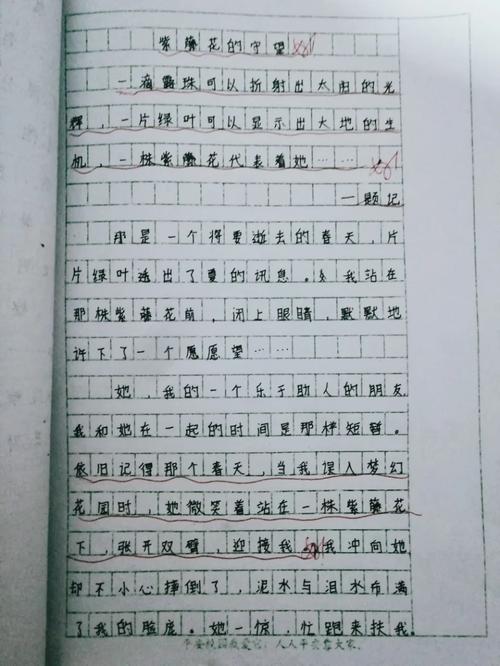 紫藤花的守望
一滴露珠可以折射出太阳的光
辉，一片绿叶可以显示出大地的生
机，一株紫藤花代表着她……
一题记
那是一个将要逝去的春天，片
片绿叶透出了夏的讯息。我站在
那株紫藤花前，闭上眼睛，默默地
许下了一个愿愿望……
她，我的一个乐于助人的朋友
我和她在一起的时间是那样短暂。
依旧记得那个春天，当我误入梦幻
花园时，她微笑着站在一株紫藤花
下，张开双臂，迎接我 我冲向她
却不小心摔倒了，泥水与泪水布满
了我的脸庞。她一惊，忙跑来扶我。